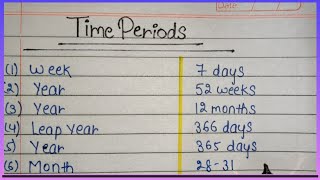 Date
Time Periods
(1) Week 7 days
(2) Year 52 weeks
(3) Year 12 months
(4) Leap Year 366 days
5) Year 365 days
(6) Month 28-31